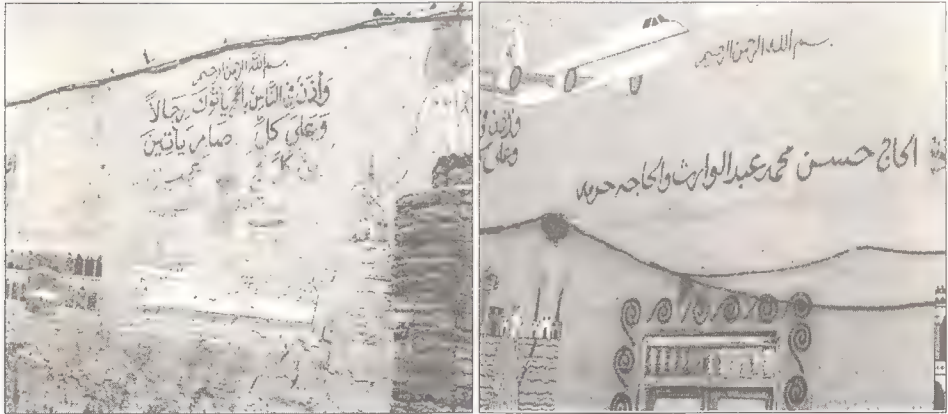 بسم الله الرحمن الرحيم
وأذن في الناس بالحج يأتوك رجالاً
وعلى كل ضامر يأتين
بسم الله الرحمن الرحيم
الحاج حسن محمد عبد الوارث والحاجه
وأذن
وعلى